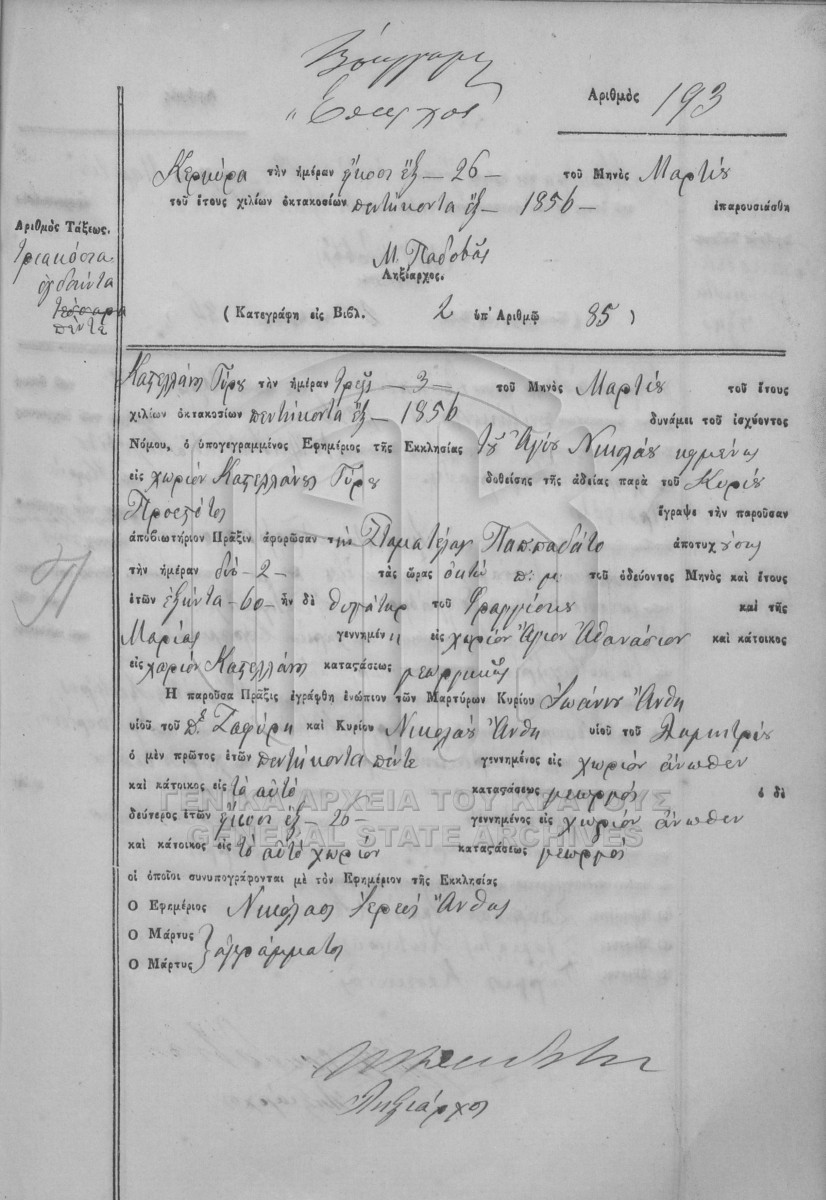 Ἔπαρχος
Ἀριθμὸς 193
Κερκύρα τὴν ἡμέραν εἴκοσι ἕξ - 26 - τοῦ Μηνὸς Μαρτίου
τοῦ ἔτους χιλίων ὀκτακοσίων πεντήκοντα ἕξ - 1856 - ἐπαρουσιάσθη
Ἀριθμὸς Τάξεως.
τριακόσια
ὀγδοήντα
τέσσαρα
πέντε
Μ. Παδοβᾶς
Ληξίαρχος.
( Κατεγράφη εἰς Βιβλ. 2 ὑπ' Ἀριθμῷ 85 )
Καπελλάνοι Γύρου τὴν ἡμέραν τρεῖς - 3 - τοῦ Μηνὸς Μαρτίου τοῦ ἔτους
χιλίων ὀκτακοσίων πεντήκοντα ἕξ - 1856 δυνάμει τοῦ ἰσχύοντος
Νόμου, ὁ ὑπογεγραμμένος Ἐφημέριος τῆς Ἐκκλησίας τοῦ Ἁγίου Νικολάου κημένης
εἰς χωρίον Καπελλάνοι Γύρου δοθείσης τῆς ἀδείας παρὰ τοῦ Κυρίου
Προεστότος ἔγραψε τὴν παροῦσαν
ἀποβιωτήριον Πρᾶξιν ἀφορῶσαν τὴν Σταματέλαν Παππαδάτο ἀποτυχούσης
τὴν ἡμέραν δύο - 2 - τὰς ὥρας ὀκτώ π: μ: τοῦ ὁδεύοντος Μηνὸς καὶ ἔτους
ἐτῶν ἑξήντα - 60 - ἦν δὲ θυγάτηρ τοῦ Φραγγίσκου καὶ τῆς
Μαρίας γεννημένη εἰς χωρίον Ἅγιον Ἀθανάσιον καὶ κάτοικος
εἰς χωρίον Καπελλάνοι καταςάσεως γεωργικῆς
Ἡ παροῦσα Πρᾶξις ἐγράφθη ἐνώπιον τῶν Μαρτύρων Κυρίου Ἰωάννου Ἄνθη
υἱοῦ τοῦ πε Ζαφύρη καὶ Κυρίου Νικολάου Ἄνθη υἱοῦ τοῦ Δημητρίου
ὁ μὲν πρῶτος ἐτῶν πεντήκοντα πέντε γεννημένος εἰς χωρίον ἄνωθεν
καὶ κάτοικος εἰς τὸ αὐτό καταςάσεως γεωργός ὁ δὲ
δεύτερος ἐτῶν εἴκοσι ἕξ - 26 - γεννημένος εἰς χωρίον ἄνωθεν
καὶ κάτοικος εἰς τὸ αὐτό χωρίον καταςάσεως γεωργός
οἱ ὁποῖοι συνυπογράφονται μὲ τὸν Ἐφημέριον τῆς Ἐκκλησίας
Ὁ Ἐφημέριος Νικόλαος Ἱερεύς Ἄνθης
Ὁ Μάρτυς } ἀγράμματοι
Ὁ Μάρτυς
Ληξίαρχος
Π
ΓΕΝΙΚΑ ΑΡΧΕΙΑ ΤΟΥ ΚΡΑΤΟΥΣ
GENERAL STATE ARCHIVES